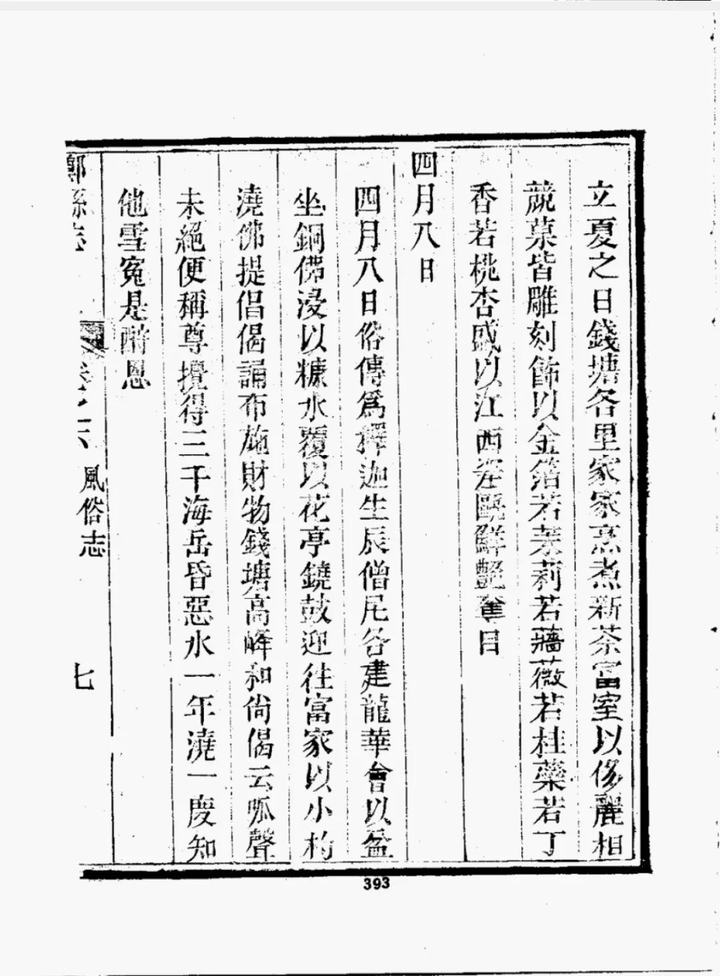 立夏之日錢塘各里家家烹煮新茶富室以侈麗相
競菓皆雕刻飾以金箔若茉莉若薔薇若桂蘂若丁
香若桃杏盛以江西窰甌鮮艷奪目
四月八日
四月八日俗傳爲釋迦生辰僧尼各建龍華會以盆
坐銅佛浸以糖水覆以花亭鐃鼓迎往富家以小杓
澆佛提倡偈誦布施財物錢塘高峰和尙偈云呱聲
未絕便稱尊攪得三千海岳昏惡水一年澆一度知
他雪冤是酧恩
縣志
卷之六 風俗志
七
393